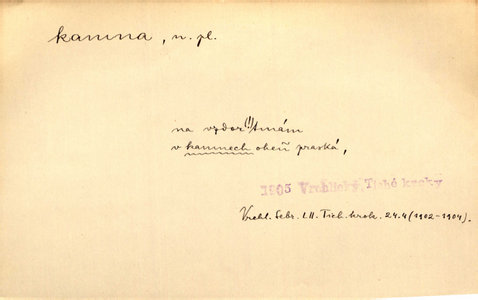 kamna, n. pl.
na vzdor(!) tmám
v kamnech oheň praská,
1905 Vrchlický, Tiché kroky
Vrchl. Sebr. LII. Tich. krok. 24.4 (1902-1904).